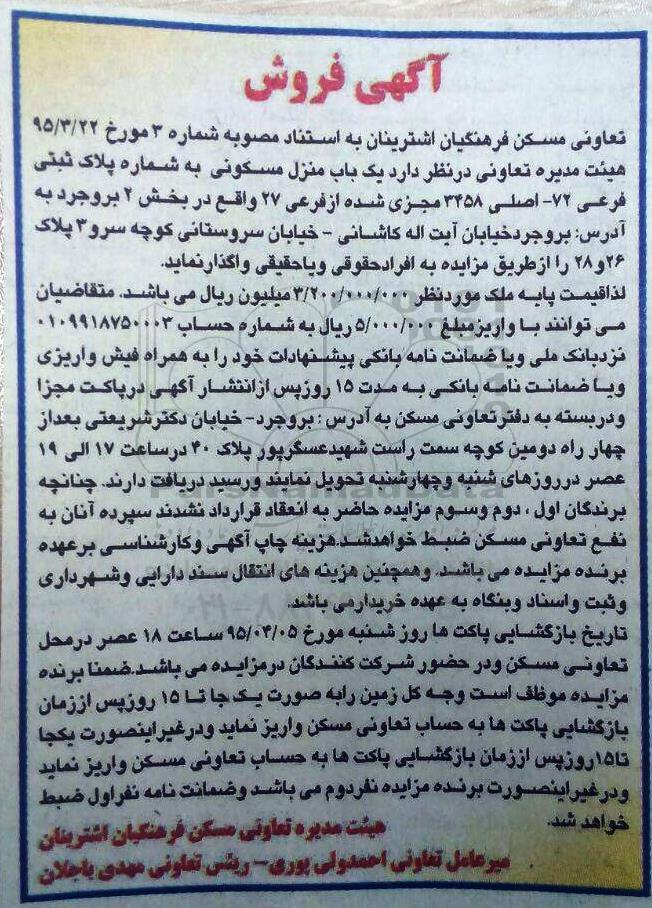 آگهی فروش
تعاونی مسکن فرهنگیان اشترینان به استناد مصوبه شماره ۳ مورخ ۹۵/۳/۲۲
هیئت مدیره تعاونی درنظر دارد یک باب منزل مسکونی به شماره پلاک ثبتی
فرعی ۷۲- اصلی ۳۴۵۸ مجزی شده ازفرعی ۲۷ واقع در بخش ۲ بروجرد به
آدرس: بروجردخیابان آیت اله کاشانی - خیابان سروستانی کوچه سرو۳ پلاک
۲۶و۲۸ را ازطریق مزایده به افرادحقوقی ویاحقیقی واگذارنماید.
لذاقیمت پایه ملک موردنظر ۳/۲۰۰/۰۰۰/۰۰۰میلیون ریال می باشد. متقاضیان
می توانند با واریزمبلغ ۵/۰۰۰/۰۰۰ ریال به شماره حساب ۰۱۰۹۹۱۸۷۵۰۰۰۳
نزدبانک ملی ویا ضمانت نامه بانکی پیشنهادات خود را به همراه فیش واریزی
ویا ضمانت نامه بانکی به مدت ۱۵ روزپس ازانتشار آگهی درپاکت مجزا
ودربسته به دفترتعاونی مسکن به آدرس : بروجرد- خیابان دکترشریعتی بعداز
چهار راه دومین کوچه سمت راست شهیدعسگرپور پلاک ۴۰ درساعت ۱۷ الی ۱۹
عصر درروزهای شنبه وچهارشنبه تحویل نمایند ورسید دریافت دارند. چنانچه
برندگان اول ، دوم وسوم مزایده حاضر به انعقاد قرارداد نشدند سپرده آنان به
نفع تعاونی مسکن ضبط خواهدشد.هزینه چاپ آگهی وکارشناسی برعهده
برنده مزایده می باشد. وهمچنین هزینه های انتقال سند دارایی وشهرداری
وثبت واسناد وبنگاه به عهده خریدارمی باشد.
تاریخ بازگشایی پاکت ها روز شنبه مورخ ۹۵/۰۴/۰۵ ساعت ۱۸ عصر درمحل
تعاونی مسکن ودر حضور شرکت کنندگان درمزایده می باشد.ضمنا برنده
مزایده موظف است وجه کل زمین رابه صورت یک جا تا ۱۵ روزپس اززمان
بازگشایی پاکت ها به حساب تعاونی مسکن واریز نماید ودرغیراینصورت یکجا
تا۱۵روزپس اززمان بازگشایی پاکت ها به حساب تعاونی مسکن واریز نماید
ودرغیراینصورت برنده مزایده نفردوم می باشد وضمانت نامه نفراول ضبط
خواهد شد.
هیئت مدیره تعاونی مسکن فرهنگیان اشترینان
میرعامل تعاونی احمدولی پوری- رئس تعاونی مهدی باجلان
ParsNamadData